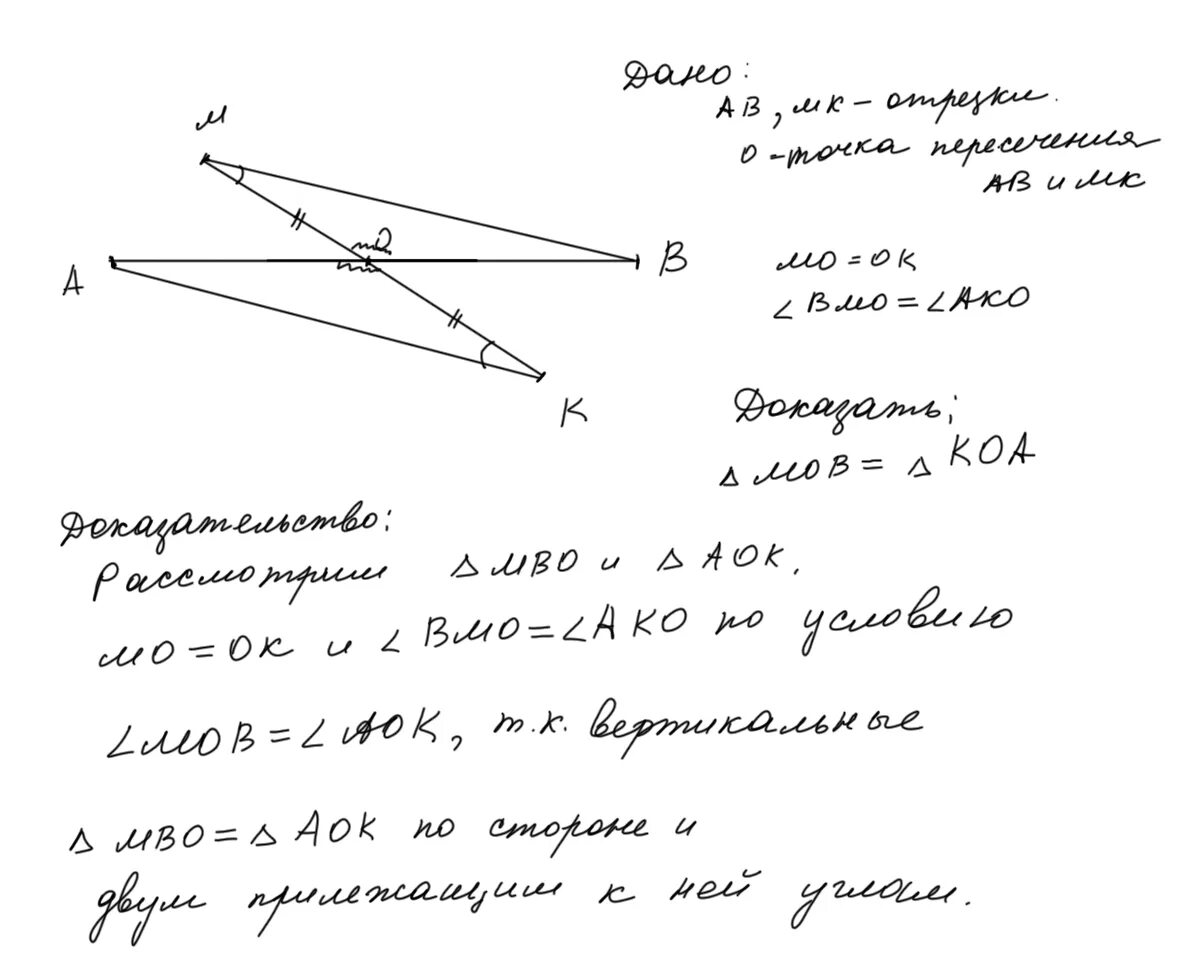 Дано:
АВ, МК – отрезки.
О – точка пересечения
АВ и МК
М
О
А
В
К
МО = ОК
∠ВМО = ∠АКО
Доказать;
△МОВ = △КОА
Доказательство:
Рассмотрим △МВО и △АОК.
МО = ОК и ∠ВМО = ∠АКО по условию
∠МОВ = ∠АОК, т.к. вертикальные
△МВО = △АОК по стороне и
двум прилежащим к ней углам.